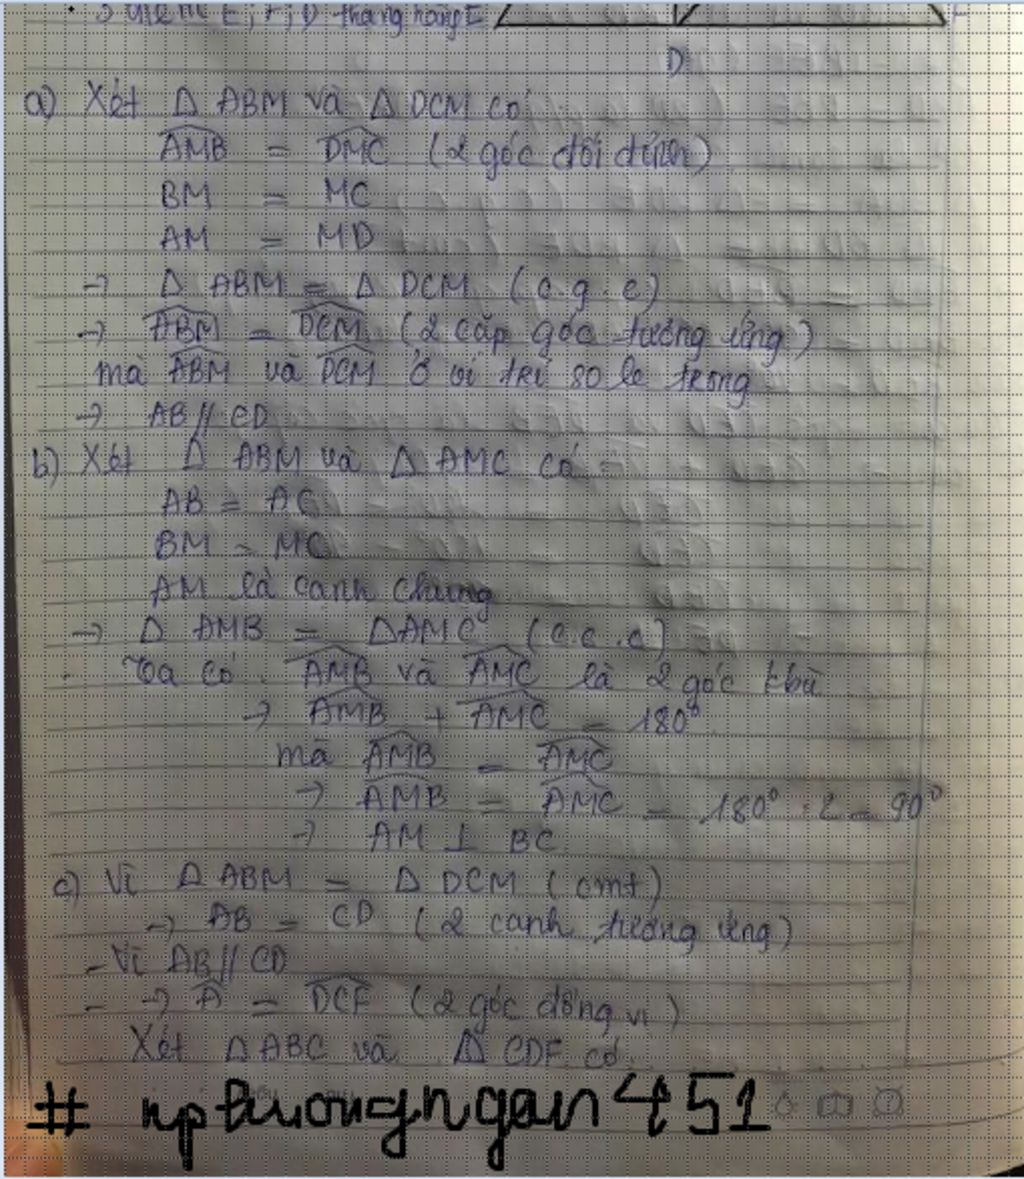 3 điểm E, F, D thẳng hàng E F
D
a) Xét Δ ABM và Δ DCM có
AMB = DMC (2 góc đối đỉnh)
BM = MC
AM = MD
→ Δ ABM = Δ DCM (c.g.c)
→ ABM = DCM (2 cặp góc tương ứng)
mà ABM và DCM ở vị trí so le trong
→ AB // CD
b) Xét Δ ABM và Δ AMC có
AB = AC
BM = MC
AM là cạnh chung
→ Δ AMB = Δ AMC (c.c.c)
Ta có AMB và AMC là 2 góc kbù
→ AMB + AMC = 180°
mà AMB = AMC
→ AMB = AMC = 180° : 2 = 90°
→ AM ⊥ BC
c) Vì Δ ABM = Δ DCM (cmt)
→ AB = CD (2 cạnh tương ứng)
- Vì AB // CD
- → A = DCF (2 góc đồng vị)
Xét Δ ABC và Δ CDF có
# nptruongngan451